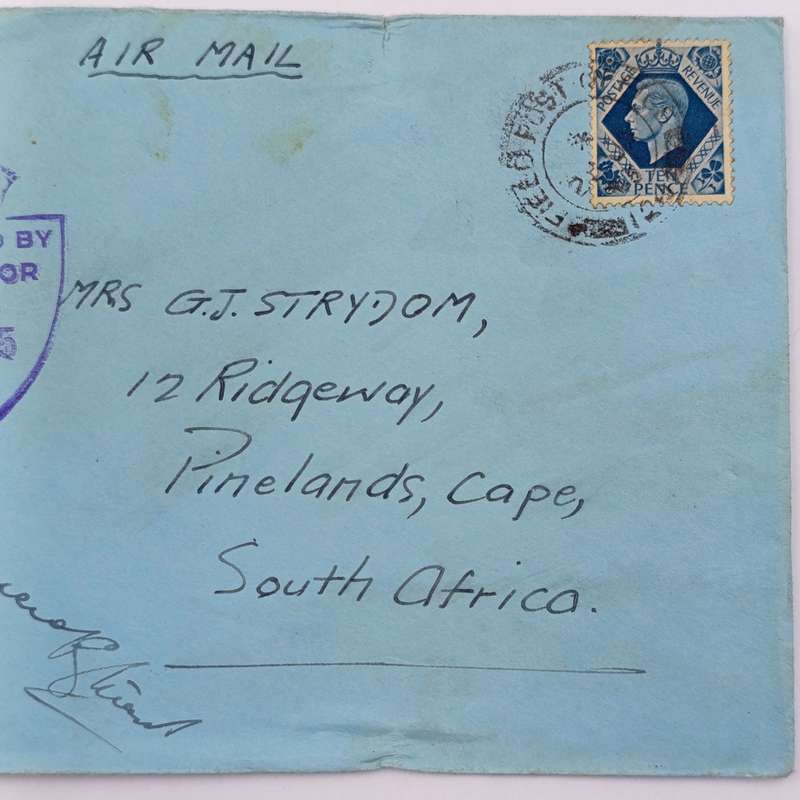 AIR MAIL
POSTAGE REVENUE
TEN
PENCE
FIELD POST
BY
OR
5
MRS G.J. STRYDOM,
12 Ridgeway,
Pinelands, Cape,
South Africa.